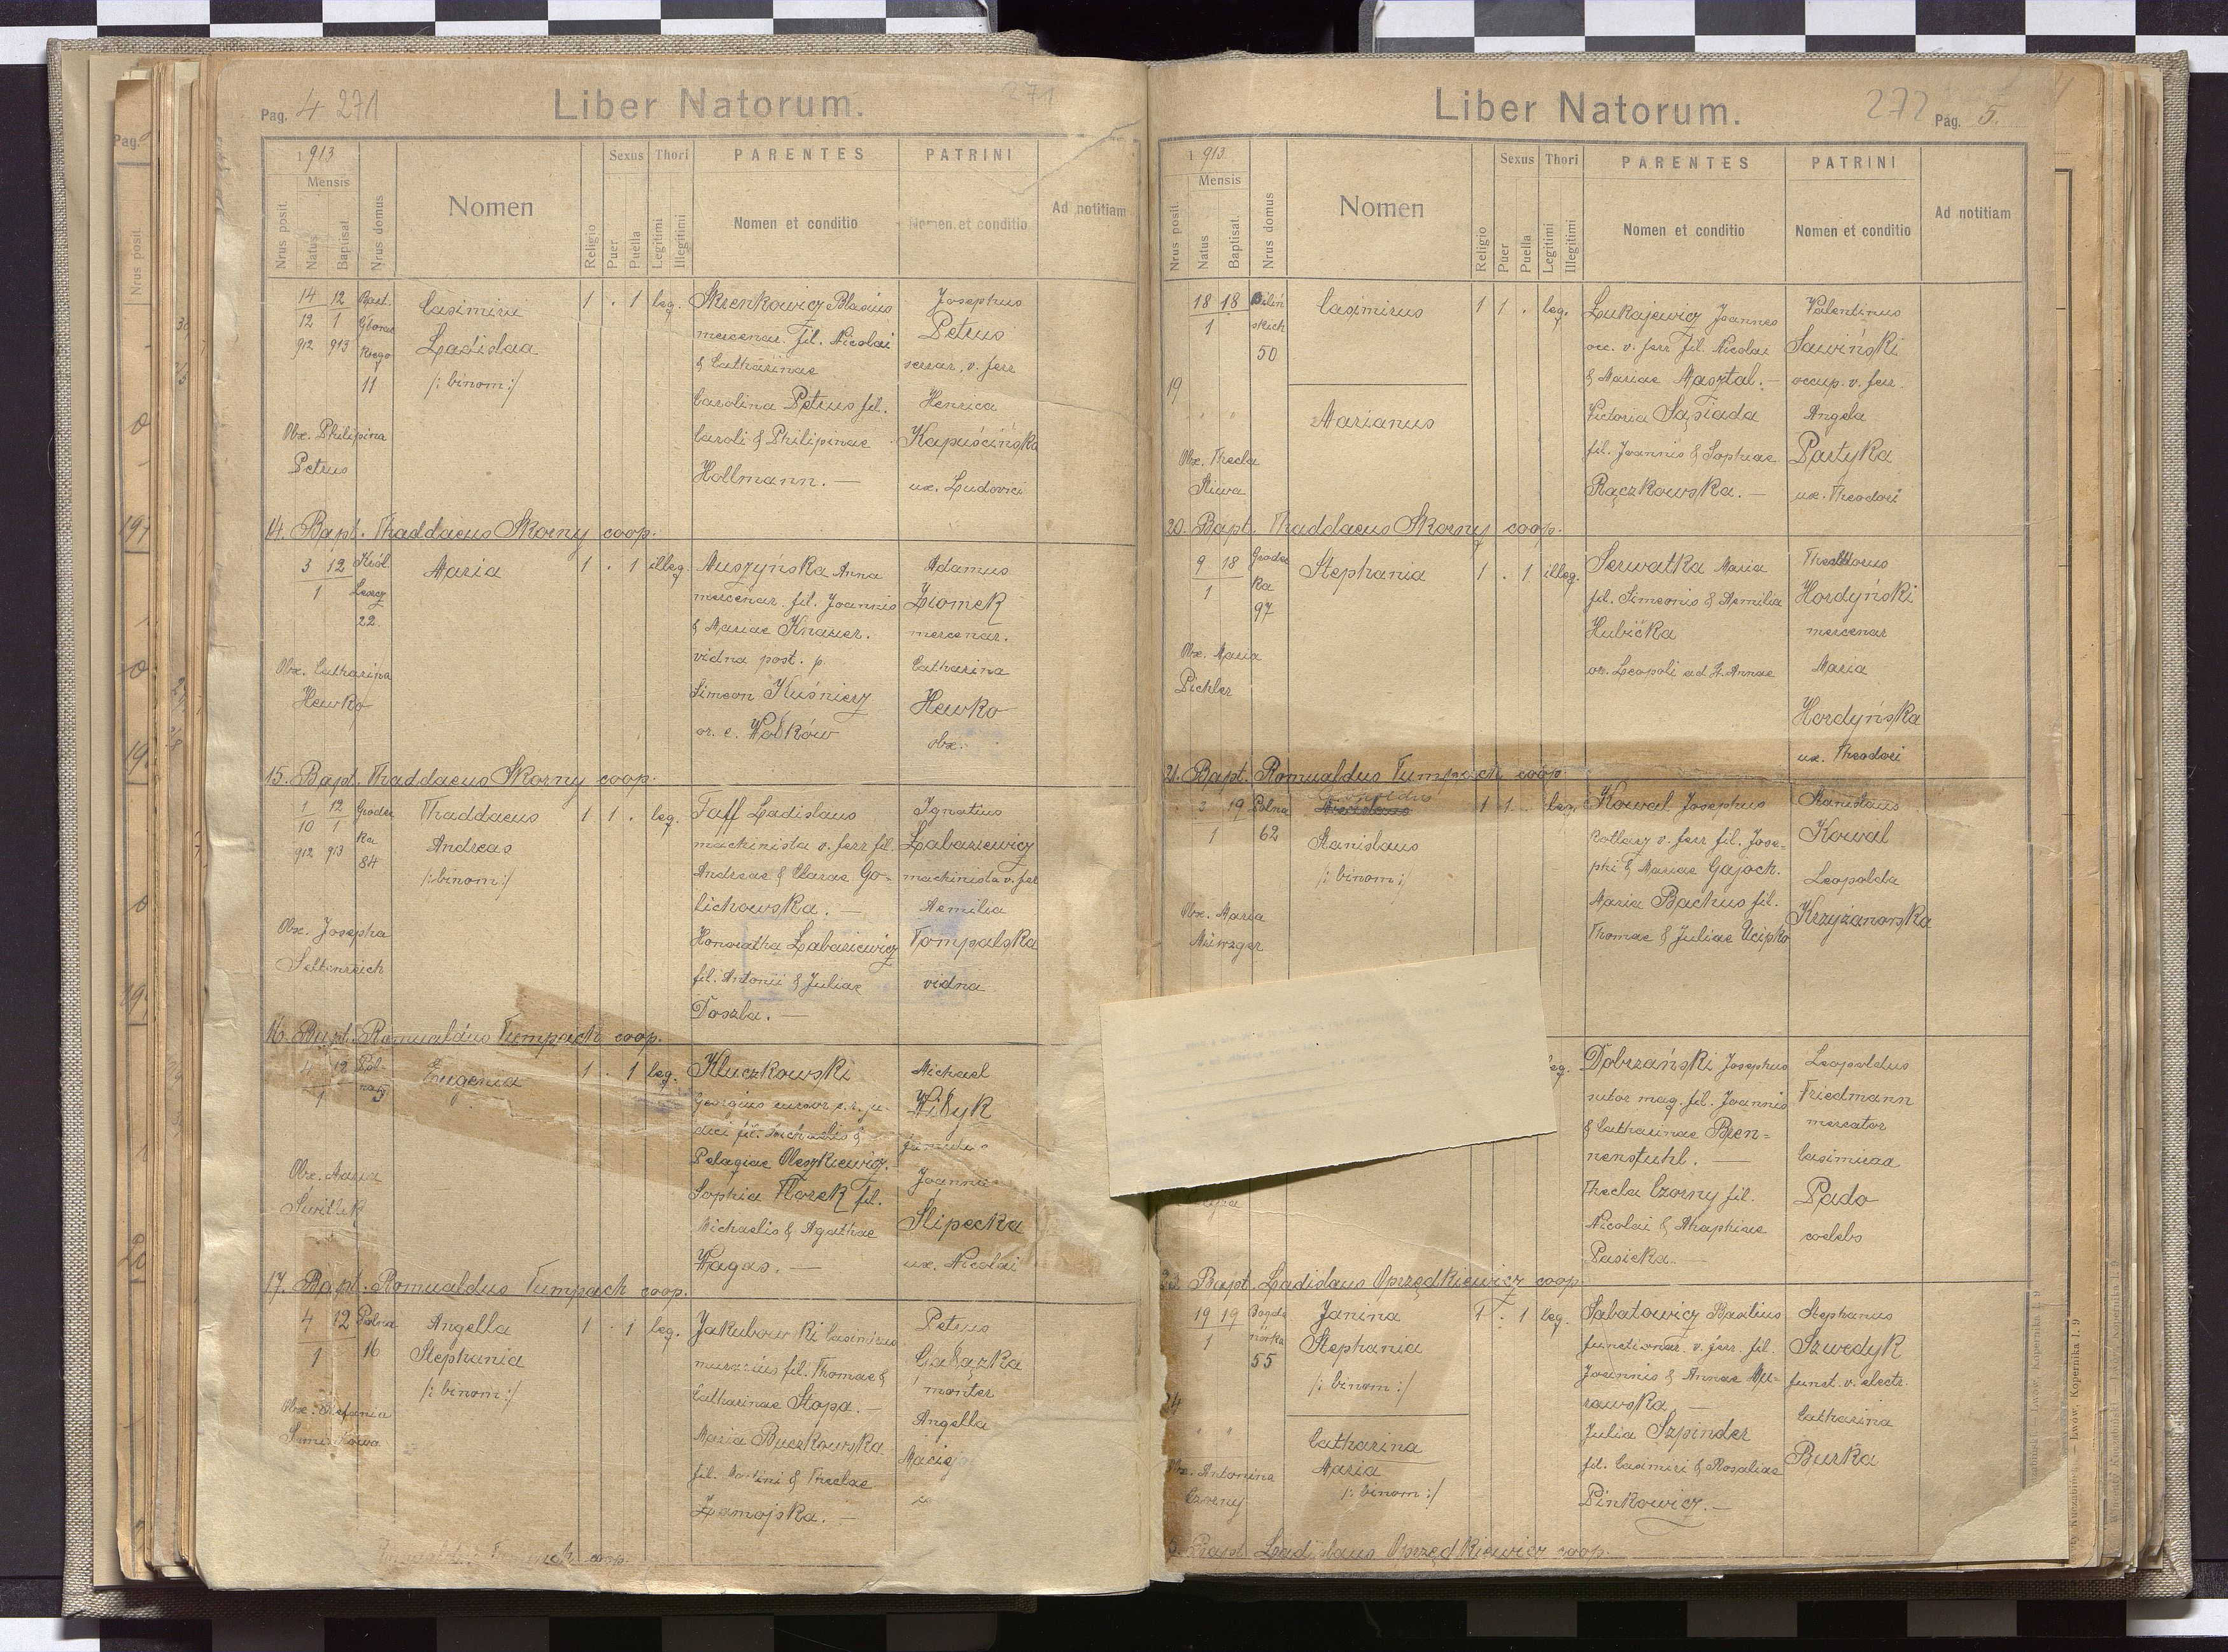 Pag. 4 271
Liber Natorum.
271
1913
Mensis
Nrus posit.
Natus
Baptisat.
Nrus domus
Nomen
Religio
Sexus
Puer
Puella
Thori
Legitimi
Illegitimi
PARENTES
Nomen et conditio
PATRINI
Nomen et conditio
Ad notitiam
14 12
12 1
912 913
11
Casimira
Ladislaa
/: binom :/
1 . 1 leg.
Skrenkowicz Blasius
mercenar. fil. Nicolai
& Catharinae
Carolina Petrus fil.
Caroli & Philipinae
Hollmann. —
Josephus
Petrus
v. ferr
Henrica
Kapuścińska
ux. Ludovici
Obx. Philipina
Petrus
14. Bapt. Thaddaeus Skorny coop.
3 12 Król
1 Leszcz
22
Maria
1 . 1 illeg.
Muszyńska Anna
mercenar. fil. Joannis
& Mariae Knauer.
vidua post. p.
Simeon Kuśnierz
or. e. Wołków
Adamus
Ziomek
mercenar.
Catharina
Hewko
obx.
Obx. Catharina
Hewko
15. Bapt. Thaddaeus Skorny coop.
1 12 Grodec
10 1 ka
912 913 84
Thaddaeus
Andreas
/: binom :/
1 1 . leg.
Taff Ladislaus
machinista v. ferr fil.
Andreae & Clarae Go=
lichowska. —
Honoratha Labasiewicz
fil. Antonii & Juliae
Doszla. —
Ignatius
Labasiewicz
machinista v. fer
Aemilia
Tompalska
vidua
Obx. Josepha
Seltenreich
16. Bapt. Romualdus Tumpach coop.
4 12 Pol-
1 na 5
Eugenia
1 . 1 leg.
Kluczkowski
Georgius cursor c. r. ju-
dici fil. Michaelis &
Pelagiae Oleszkiewicz.
Sophia Florek fil.
Michaelis & Agathae
Wagas. —
Michael
Wityk
Joanna
Slipecka
ux. Nicolai
Obx. Maria
17. Bapt. Romualdus Tumpach coop.
4 12 Polna
1 16
Angella
Stephania
/: binom :/
1 . 1 leg.
Jakubowski Casimirus
murarius fil. Thomae &
Catharinae Stopa. —
Maria Buczkowska
fil. Martini & Theclae
Zamojska. —
Petrus
Gałązka
monter
Angella
Maciej
Obx. Stefania
coop.
Liber Natorum.
272 Pag. 5.
1913
Mensis
Nrus posit.
Natus
Baptisat.
Nrus domus
Nomen
Religio
Sexus
Puer
Puella
Thori
Legitimi
Illegitimi
PARENTES
Nomen et conditio
PATRINI
Nomen et conditio
Ad notitiam
18 18
1 skich
50
Casimirus
1 1 . leg.
Lukajewicz Joannes
occ. v. ferr fil. Nicolai
& Mariae Masztal. —
Victoria Sąsiada
fil. Joannis & Sophiae
Rączkowska. —
Valentinus
Sawiński
occup. v. ferr.
Angela
Pastyka
ux. Theodori
19
" "
Marianus
Obx. Thecla
Siwa
20. Bapt. Thaddaeus Skorny coop.
9 18 Grodec
1 ka
97
Stephania
1 . 1 illeg.
Serwatka Maria
fil. Simeonis & Aemilia
Hubička
or. Leopoli ad S. Annae
Theodorus
Hordyński
mercenar
Maria
Hordyńska
ux. Theodori
Obx. Maria
Pichler
21. Bapt. Romualdus Tumpach coop.
3 19 Polna
1 62
Leopoldus
Stanislaus
/: binom :/
1 1 . leg.
Kowal Josephus
kotlarz v. ferr fil. Jose=
phi & Mariae Gajoch.
Maria Bachus fil.
Thomae & Juliae Ucipko
Stanislaus
Kowal
Leopolda
Krzyżanowska
Obx. Maria
eg.
Dobrzański Josephus
sutor mag. fil. Joannis
& Catharinae Bren=
nenstuhl. —
Thecla Czorny fil.
Nicolai & Anaphiae
Pasieka. —
Leopoldus
Friedmann
mercator
Casimiraa
Pado
coelebs
23. Bapt. Ladislaus Oprzędkiewicz coop.
19 19 Bogda
1 nówka
55
Janina
Stephania
/: binom :/
1 . 1 leg.
Sabatowicz Basilius
functionar. v. ferr. fil.
Joannis & Annae Mu-
rawska —
Julia Szpinder
fil. Casimiri & Rosaliae
Pinkowicz. —
Stephanus
Szwedyk
funct. v. electr.
Catharina
Burka
24
" "
Catharina
Maria
/: binom :/
Obx. Antonina
Czorny
Bapt. Ladislaus Oprzędkiewicz coop.
Lwow, Kopernika l. 9